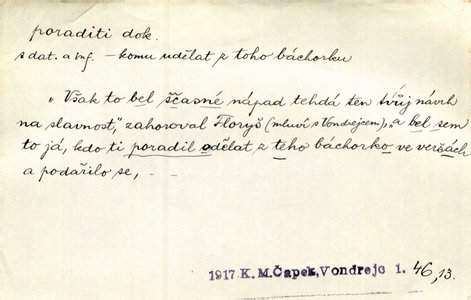 poraditi dok.
s dat. a inf. – komu udělat z toho báchorku
„Však to bel ščasné nápad tehdá ten tvůj návrh
na slavnost,“ zahoroval Floryš (mluví s Vondrejcem), „a bel sem
to já, kdo ti poradil odělat z teho báchorko ve veršách
a podařilo se, – –
1917 K.M.Čapek, Vondrejc 1. 46,13.